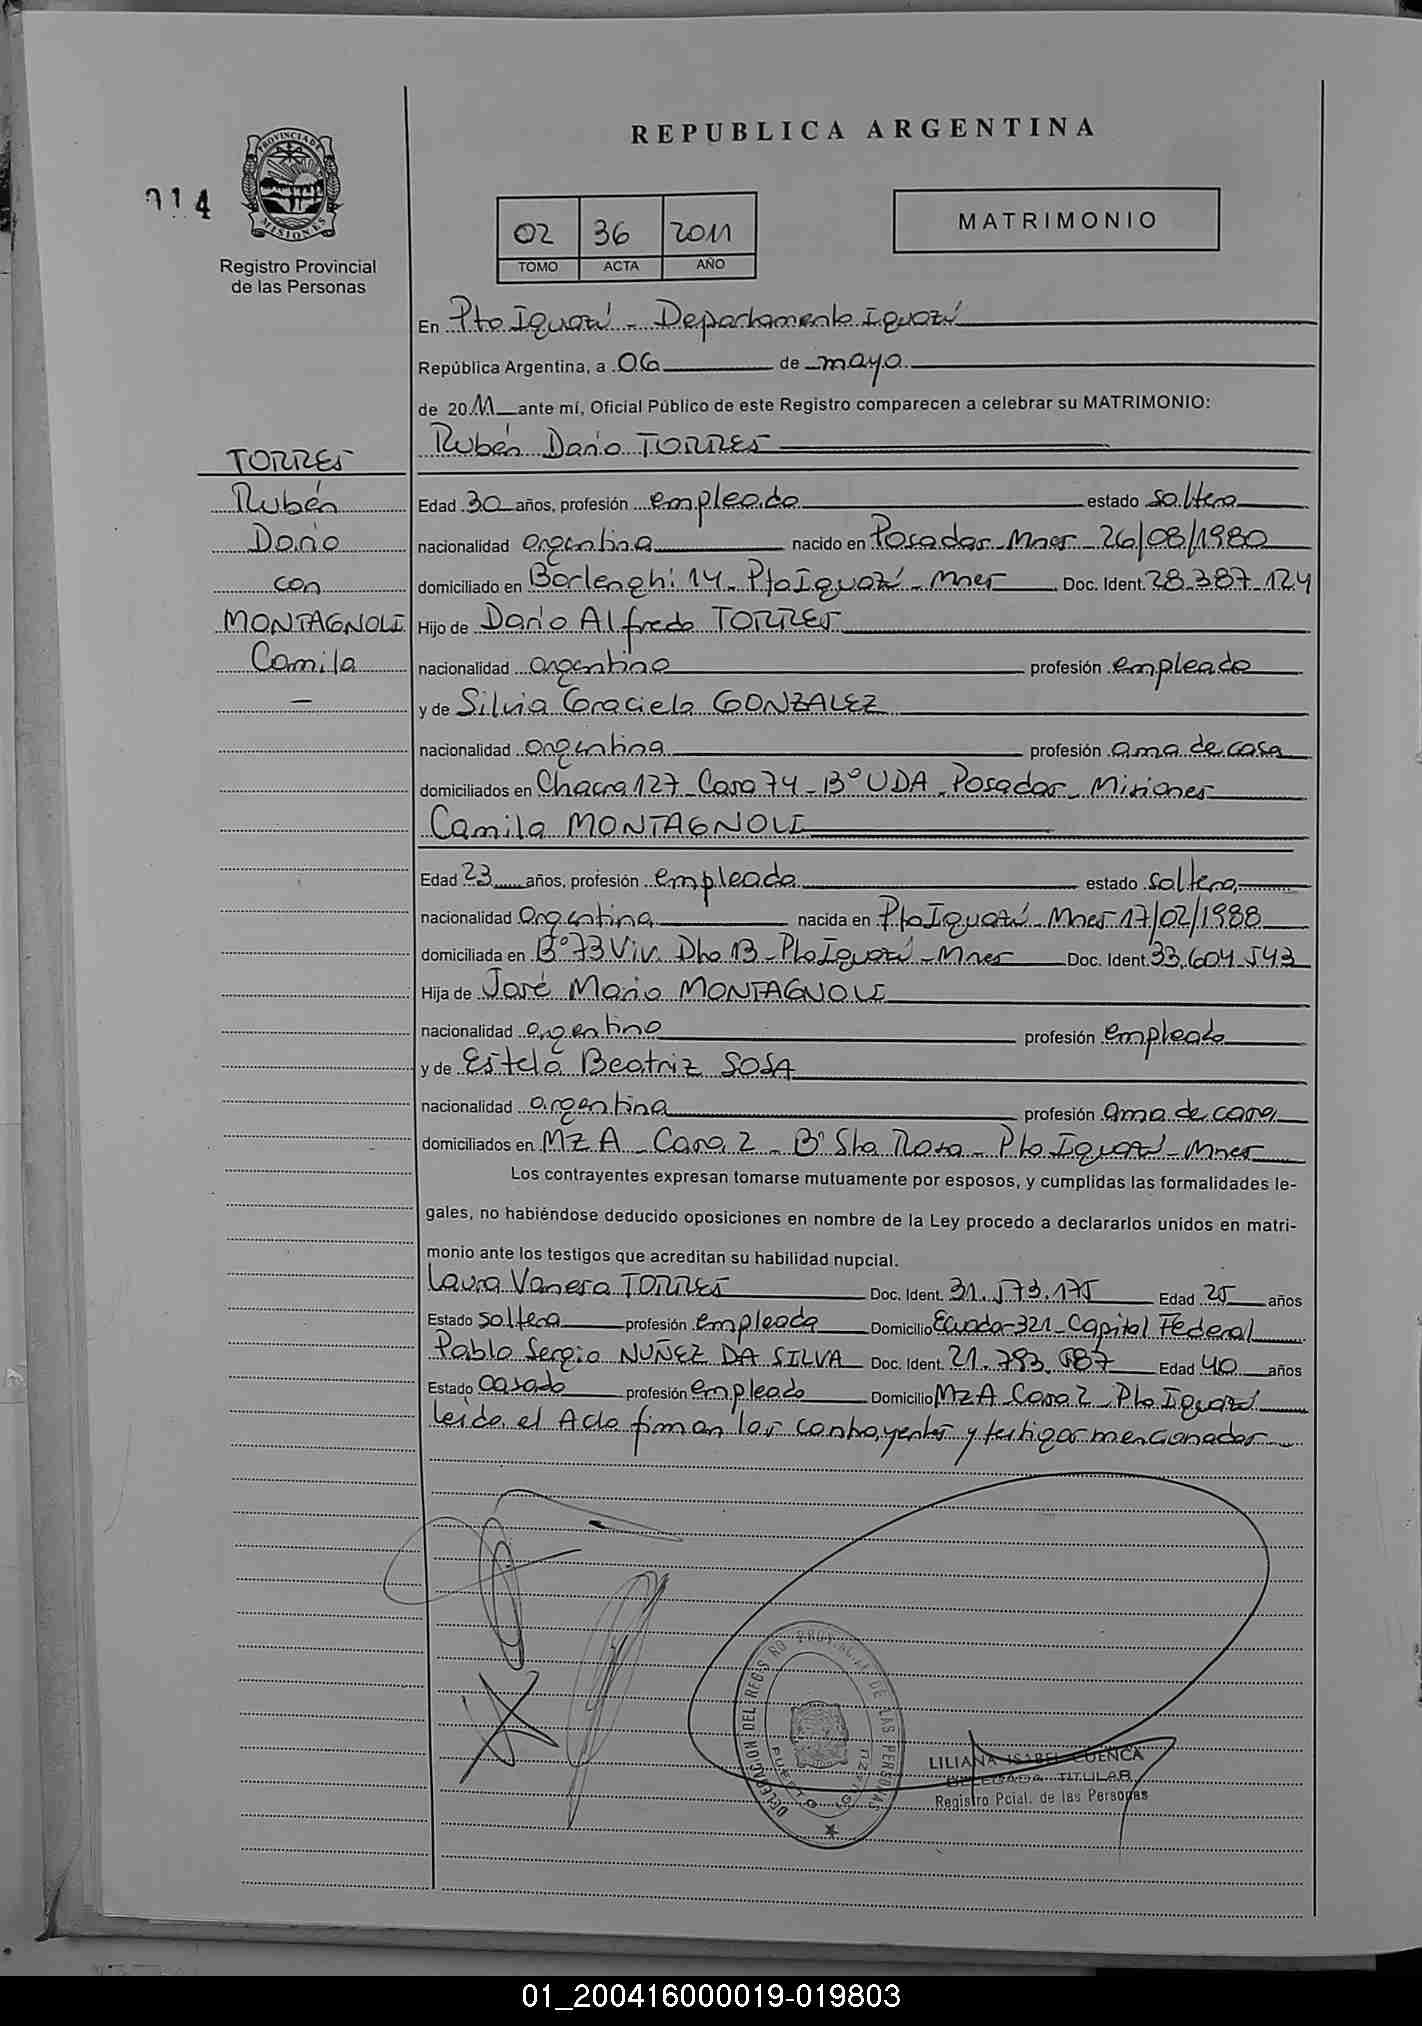 REPUBLICA ARGENTINA
014
PROVINCIA DE
MISIONES
Registro Provincial
de las Personas
02 36 2011
TOMO ACTA AÑO
MATRIMONIO
En Pto Iguazú - Departamento Iguazú
República Argentina, a 06 de mayo
de 2011 ante mí, Oficial Público de este Registro comparecen a celebrar su MATRIMONIO:
Rubén Darío TORRES
TORRES
Rubén
Darío
con
MONTAGNOLI
Camila
—
Edad 30 años, profesión empleado estado soltero
nacionalidad argentina nacido en Posadas Mnes 26/08/1980
domiciliado en Borlenghi 14 - Pto Iguazú - Mnes Doc. Ident. 28.387.124
Hijo de Darío Alfredo TORRES
nacionalidad argentino profesión empleado
y de Silvia Graciela GONZALEZ
nacionalidad argentina profesión ama de casa
domiciliados en Chacra 127 - Casa 74 - B° UDA - Posadas - Misiones
Camila MONTAGNOLI
Edad 23 años, profesión empleada estado soltera
nacionalidad Argentina nacida en Pto Iguazú - Mnes 17/02/1988
domiciliada en B° 73 Viv. Dto 13 - Pto Iguazú - Mnes Doc. Ident. 33.604.543
Hija de José Mario MONTAGNOLI
nacionalidad argentino profesión empleado
y de Estela Beatriz SOSA
nacionalidad argentina profesión ama de casa
domiciliados en MZ A - Casa 2 - B° Sta Rosa - Pto Iguazú - Mnes
Los contrayentes expresan tomarse mutuamente por esposos, y cumplidas las formalidades le-
gales, no habiéndose deducido oposiciones en nombre de la Ley procedo a declararlos unidos en matri-
monio ante los testigos que acreditan su habilidad nupcial.
Laura Vanesa TORRES Doc. Ident. 31.573.175 Edad 25 años
Estado soltera profesión empleada Domicilio Ecuador 321 - Capital Federal
Pablo Sergio NUÑEZ DA SILVA Doc. Ident. 21.793.687 Edad 40 años
Estado casado profesión empleado Domicilio MZ A Casa 2 - Pto Iguazú
Leida el Acta firman los contrayentes y testigos mencionados
DELEGACION DEL REGISTRO PROVINCIAL DE LAS PERSONAS
PUERTO IGUAZU
LILIANA ISABEL CUENCA
DELEGADA TITULAR
Registro Pcial. de las Personas
01_200416000019-019803